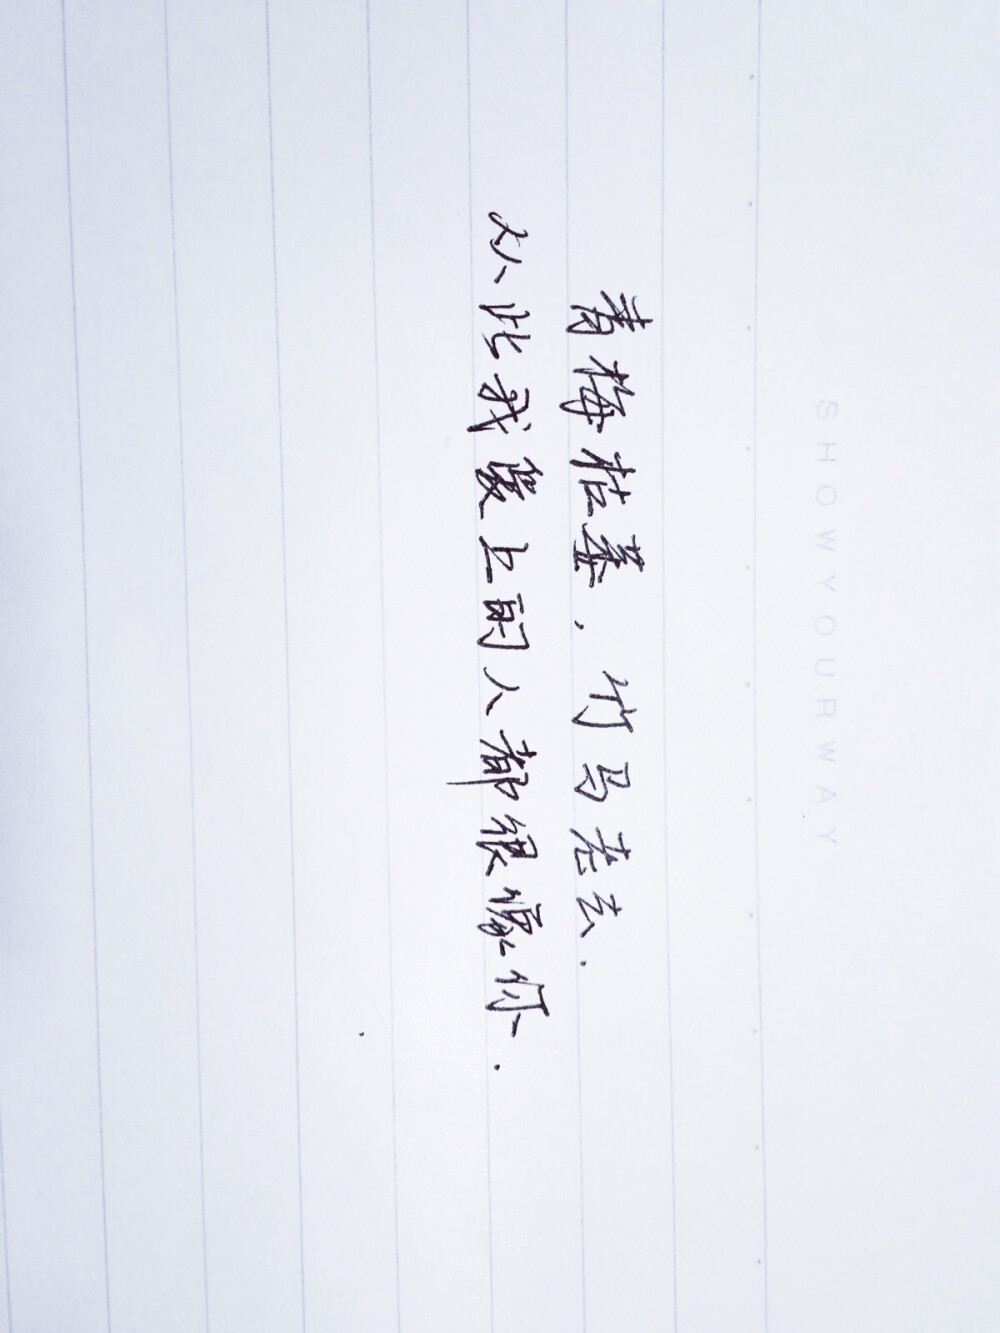 SHOWYOURWAY
青梅枯萎,竹马老去.
从此我爱上的人都很像你.